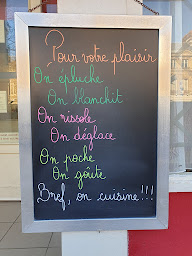 Pour votre plaisir
On épluche
On blanchit
On rissole
On déglace
On poche
On goûte
Bref, on cuisine !!!